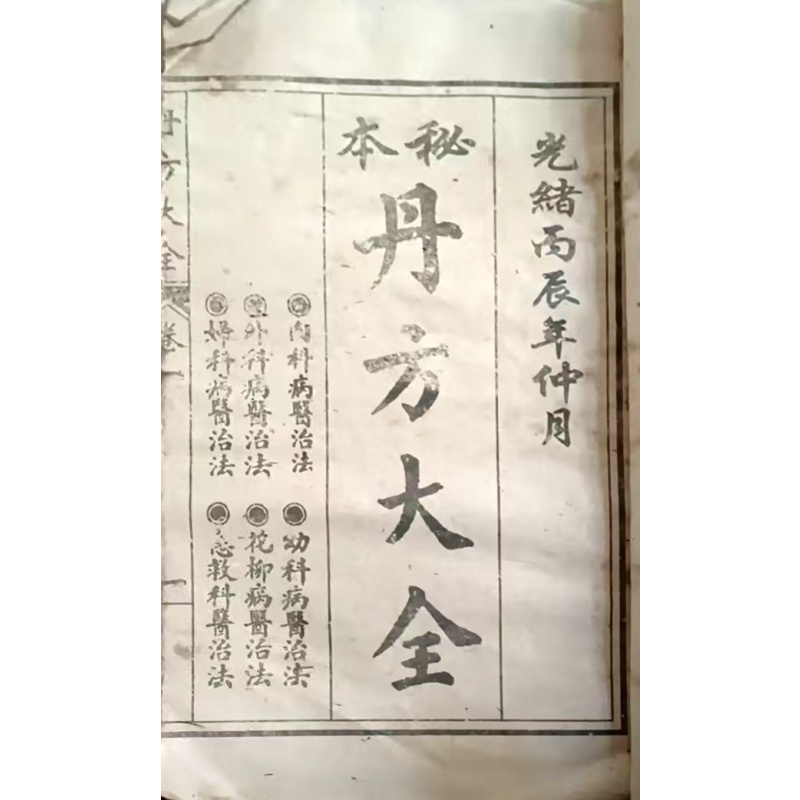 光緒丙辰年仲月
秘本
丹方大全
内科病醫治法
幼科病醫治法
外科病醫治法
花柳病醫治法
婦科病醫治法
急救科醫治法
丹方大全
卷一